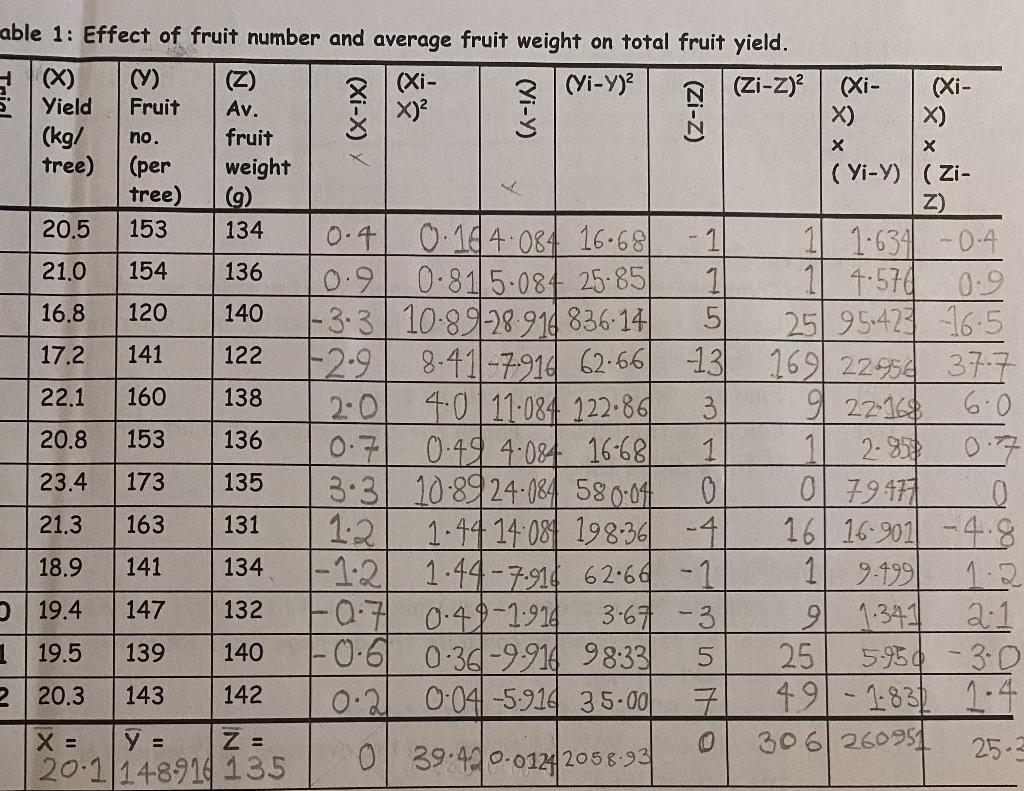 able 1: Effect of fruit number and average fruit weight on total fruit yield.
(X) Yield (kg/ tree) (Y) Fruit no. (per tree) (Z) Av. fruit weight (g) (Xi-X) (Xi-X)² (Yi-Y) (Yi-Y)² (Zi-Z) (Zi-Z)² (Xi-X) x (Yi-Y) (Xi-X) x (Zi-Z)
20.5 153 134 0.4 0.16 4.084 16.68 -1 1 1.634 -0.4
21.0 154 136 0.9 0.81 5.084 25.85 1 1 4.576 0.9
16.8 120 140 -3.3 10.89 -28.916 836.14 5 25 95.423 -16.5
17.2 141 122 -2.9 8.41 -7.916 62.66 -13 169 22.956 37.7
22.1 160 138 2.0 4.0 11.084 122.86 3 9 22.168 6.0
20.8 153 136 0.7 0.49 4.084 16.68 1 1 2.858 0.7
23.4 173 135 3.3 10.89 24.084 580.04 0 0 79.477 0
21.3 163 131 1.2 1.44 14.084 198.36 -4 16 16.901 -4.8
18.9 141 134 -1.2 1.44 -7.916 62.66 -1 1 9.499 1.2
0 19.4 147 132 -0.7 0.49 -1.916 3.67 -3 9 1.341 2.1
1 19.5 139 140 -0.6 0.36 -9.916 98.33 5 25 5.950 -3.0
2 20.3 143 142 0.2 0.04 -5.916 35.00 7 49 -1.832 1.4
X̅ = 20.1 Y̅ = 148.916 Z̅ = 135 0 39.42 0.0124 2058.93 0 306 260951 25.3